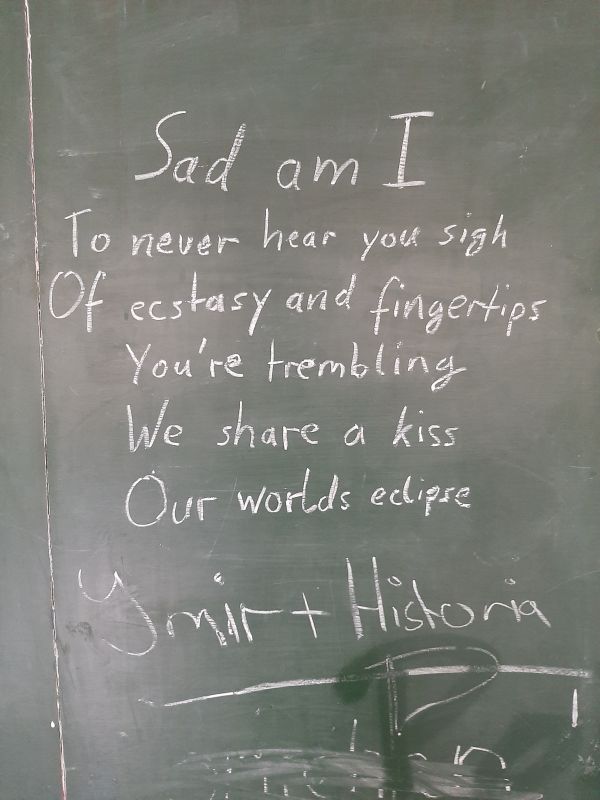 Sad am I
To never hear you sigh
Of ecstasy and fingertips
You're trembling
We share a kiss
Our worlds eclipse
Ymir + Historia